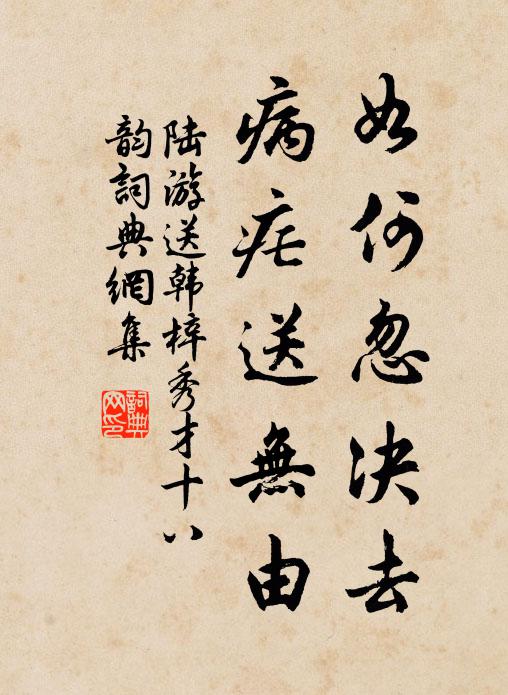 如何忽决去
病疟送無由
陆游送韩梓秀才十八
韵詞典網集
詞典网印